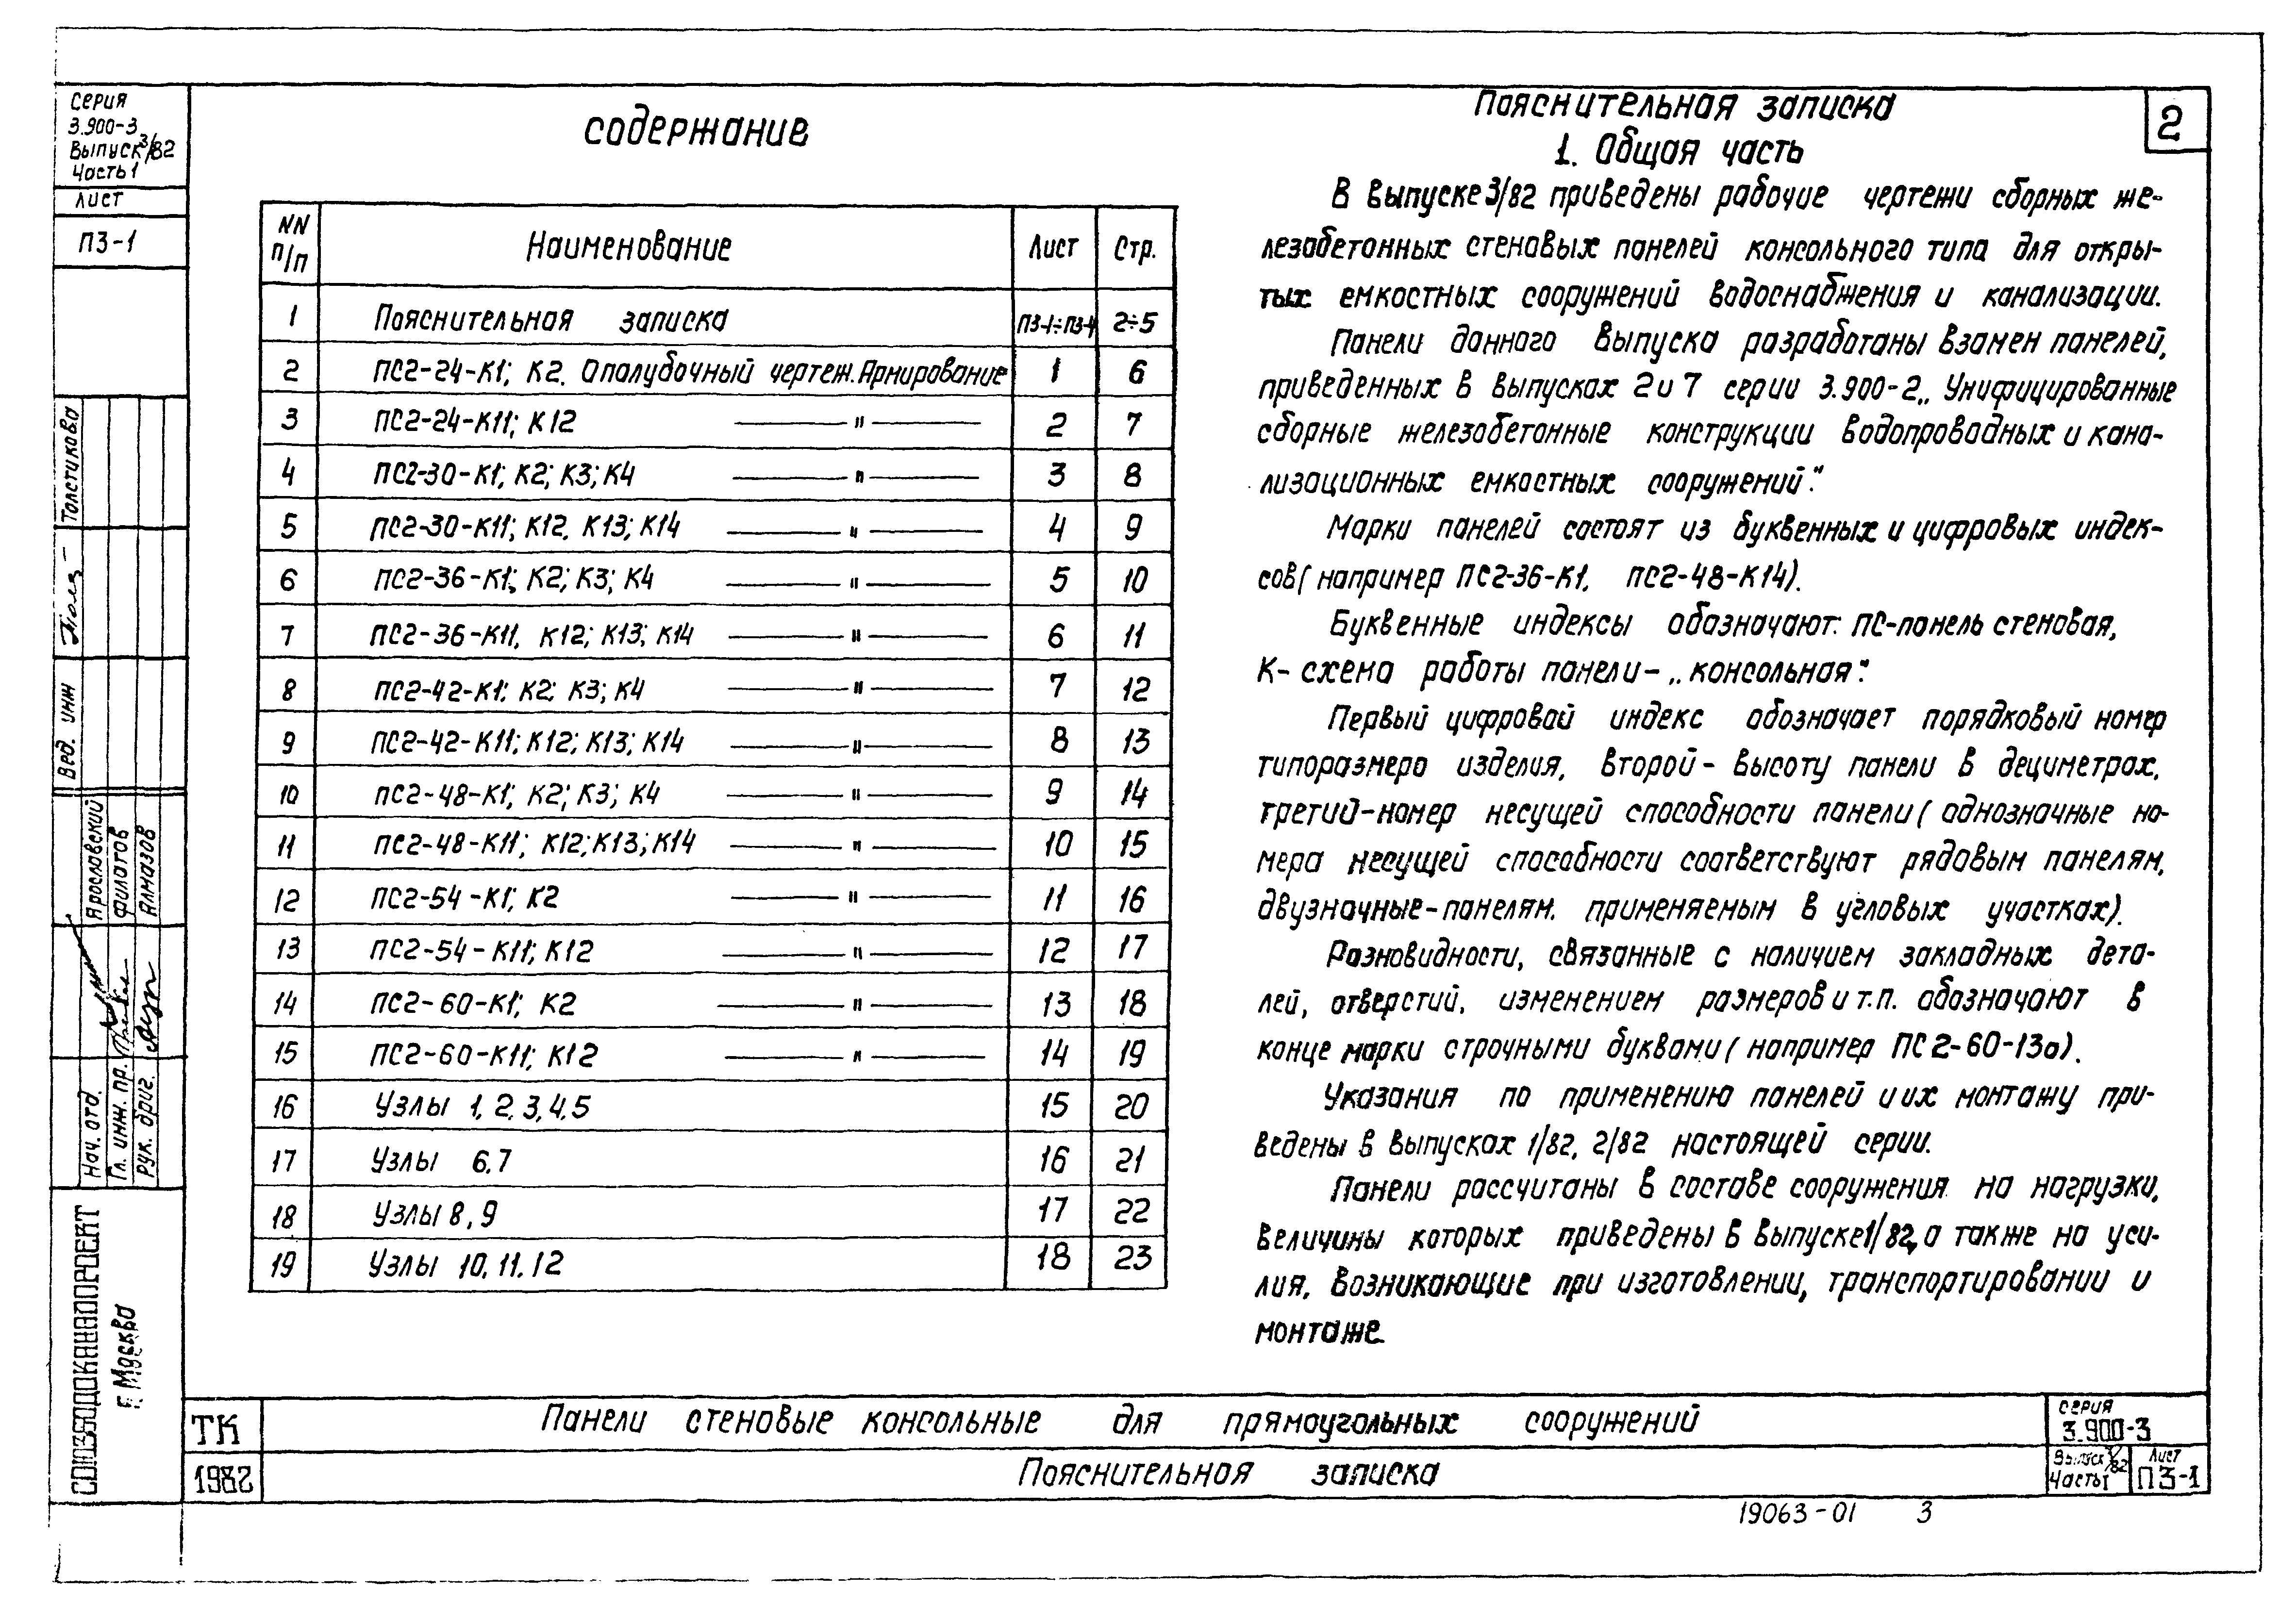 Серия
3.900-3
Выпуск 3/82
Часть 1
Лист
ПЗ-1
Толстикова
Вед. инж
Ярославский
Филатов
Алмазов
Нач. отд.
Гл. инж. пр.
Рук. бриг.
СОЮЗВОДОКАНАЛПРОЕКТ
г. Москва
Содержание
NN п/п Наименование Лист Стр.
1 Пояснительная записка ПЗ-1÷ПЗ-4 2÷5
2 ПС2-24-К1; К2. Опалубочный чертеж. Армирование 1 6
3 ПС2-24-К11; К12 — " — 2 7
4 ПС2-30-К1; К2; К3; К4 — " — 3 8
5 ПС2-30-К11; К12, К13; К14 — " — 4 9
6 ПС2-36-К1; К2; К3; К4 — " — 5 10
7 ПС2-36-К11, К12; К13; К14 — " — 6 11
8 ПС2-42-К1; К2; К3; К4 — " — 7 12
9 ПС2-42-К11; К12; К13; К14 — " — 8 13
10 ПС2-48-К1; К2; К3; К4 — " — 9 14
11 ПС2-48-К11; К12; К13; К14 — " — 10 15
12 ПС2-54-К1; К2 — " — 11 16
13 ПС2-54-К11; К12 — " — 12 17
14 ПС2-60-К1; К2 — " — 13 18
15 ПС2-60-К11; К12 — " — 14 19
16 Узлы 1, 2, 3, 4, 5 15 20
17 Узлы 6, 7 16 21
18 Узлы 8, 9 17 22
19 Узлы 10, 11, 12 18 23
2
Пояснительная записка
1. Общая часть
В выпуске 3/82 приведены рабочие чертежи сборных же-
лезобетонных стеновых панелей консольного типа для откры-
тых емкостных сооружений водоснабжения и канализации.
Панели данного выпуска разработаны взамен панелей,
приведенных в выпусках 2 и 7 серии 3.900-2 „Унифицированные
сборные железобетонные конструкции водопроводных и кана-
лизационных емкостных сооружений".
Марки панелей состоят из буквенных и цифровых индек-
сов (например ПС2-36-К1, ПС2-48-К14).
Буквенные индексы обозначают: ПС-панель стеновая,
К- схема работы панели- „консольная".
Первый цифровой индекс обозначает порядковый номер
типоразмера изделия, второй - высоту панели в дециметрах,
третий-номер несущей способности панели (однозначные но-
мера несущей способности соответствуют рядовым панелям,
двузначные-панелям, применяемым в угловых участках).
Разновидности, связанные с наличием закладных дета-
лей, отверстий, изменением размеров и т.п. обозначают в
конце марки строчными буквами (например ПС2-60-13а).
Указания по применению панелей и их монтажу при-
ведены в выпусках 1/82, 2/82 настоящей серии.
Панели рассчитаны в составе сооружения на нагрузки,
величины которых приведены в выпуске 1/82, а также на уси-
лия, возникающие при изготовлении, транспортировании и
монтаже
ТК
1982
Панели стеновые консольные для прямоугольных сооружений
Пояснительная записка
серия
3.900-3
Выпуск 3/82
Часть 1
Лист
ПЗ-1
19063-01 3